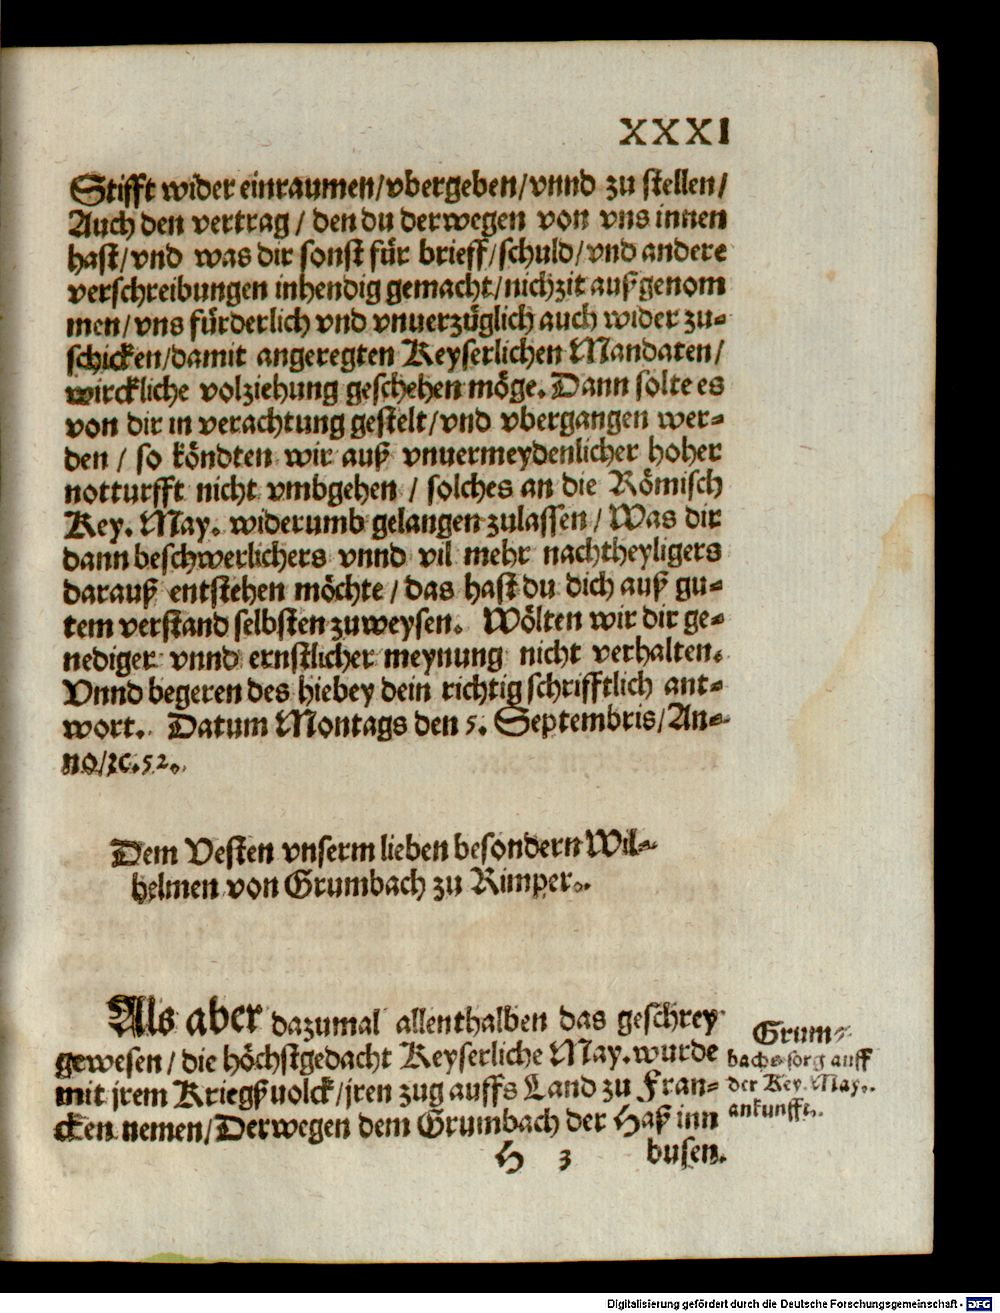 XXXI
Stifft wider einraumen/vbergeben/vnnd zu stellen/
Auch den vertrag / den du derwegen von vns innen
hast/vnd was dir sonst für brieff/schuld/vnd andere
verschreibungen inhendig gemacht/nichzit außgenom
men/vns fürderlich vnd vnuerzüglich auch wider zu-
schicken/damit angeregten Keyserlichen Mandaten/
wirckliche volziehung geschehen möge. Dann solte es
von dir in verachtung gestelt/vnd vbergangen wer-
den / so köndten wir auß vnuermeydenlicher hoher
notturfft nicht vmbgehen / solches an die Römisch
Key. May. widerumb gelangen zulassen / Was dir
dann beschwerlichers vnnd vil mehr nachtheyligers
darauß entstehen möchte / das hast du dich auß gu-
tem verstand selbsten zuweysen. Wölten wir dir ge-
nediger vnnd ernstlicher meynung nicht verhalten.
Vnnd begeren des hiebey dein richtig schrifftlich ant-
wort. Datum Montags den 5. Septembris/An-
no/ꝛc. 52.
Dem Vesten vnserm lieben besondern Wil-
helmen von Grumbach zu Rimper.
Als aber dazumal allenthalben das geschrey
gewesen / die höchstgedacht Keyserliche May. wurde
mit jrem Kriegßuolck/jren zug auffs Land zu Fran-
cken nemen/Derwegen dem Grumbach der Haß inn
Grum-
bachs sorg auff
der Key. May.
ankunfft.
H 3 busen.
Digitalisierung gefördert durch die Deutsche Forschungsgemeinschaft - DFG